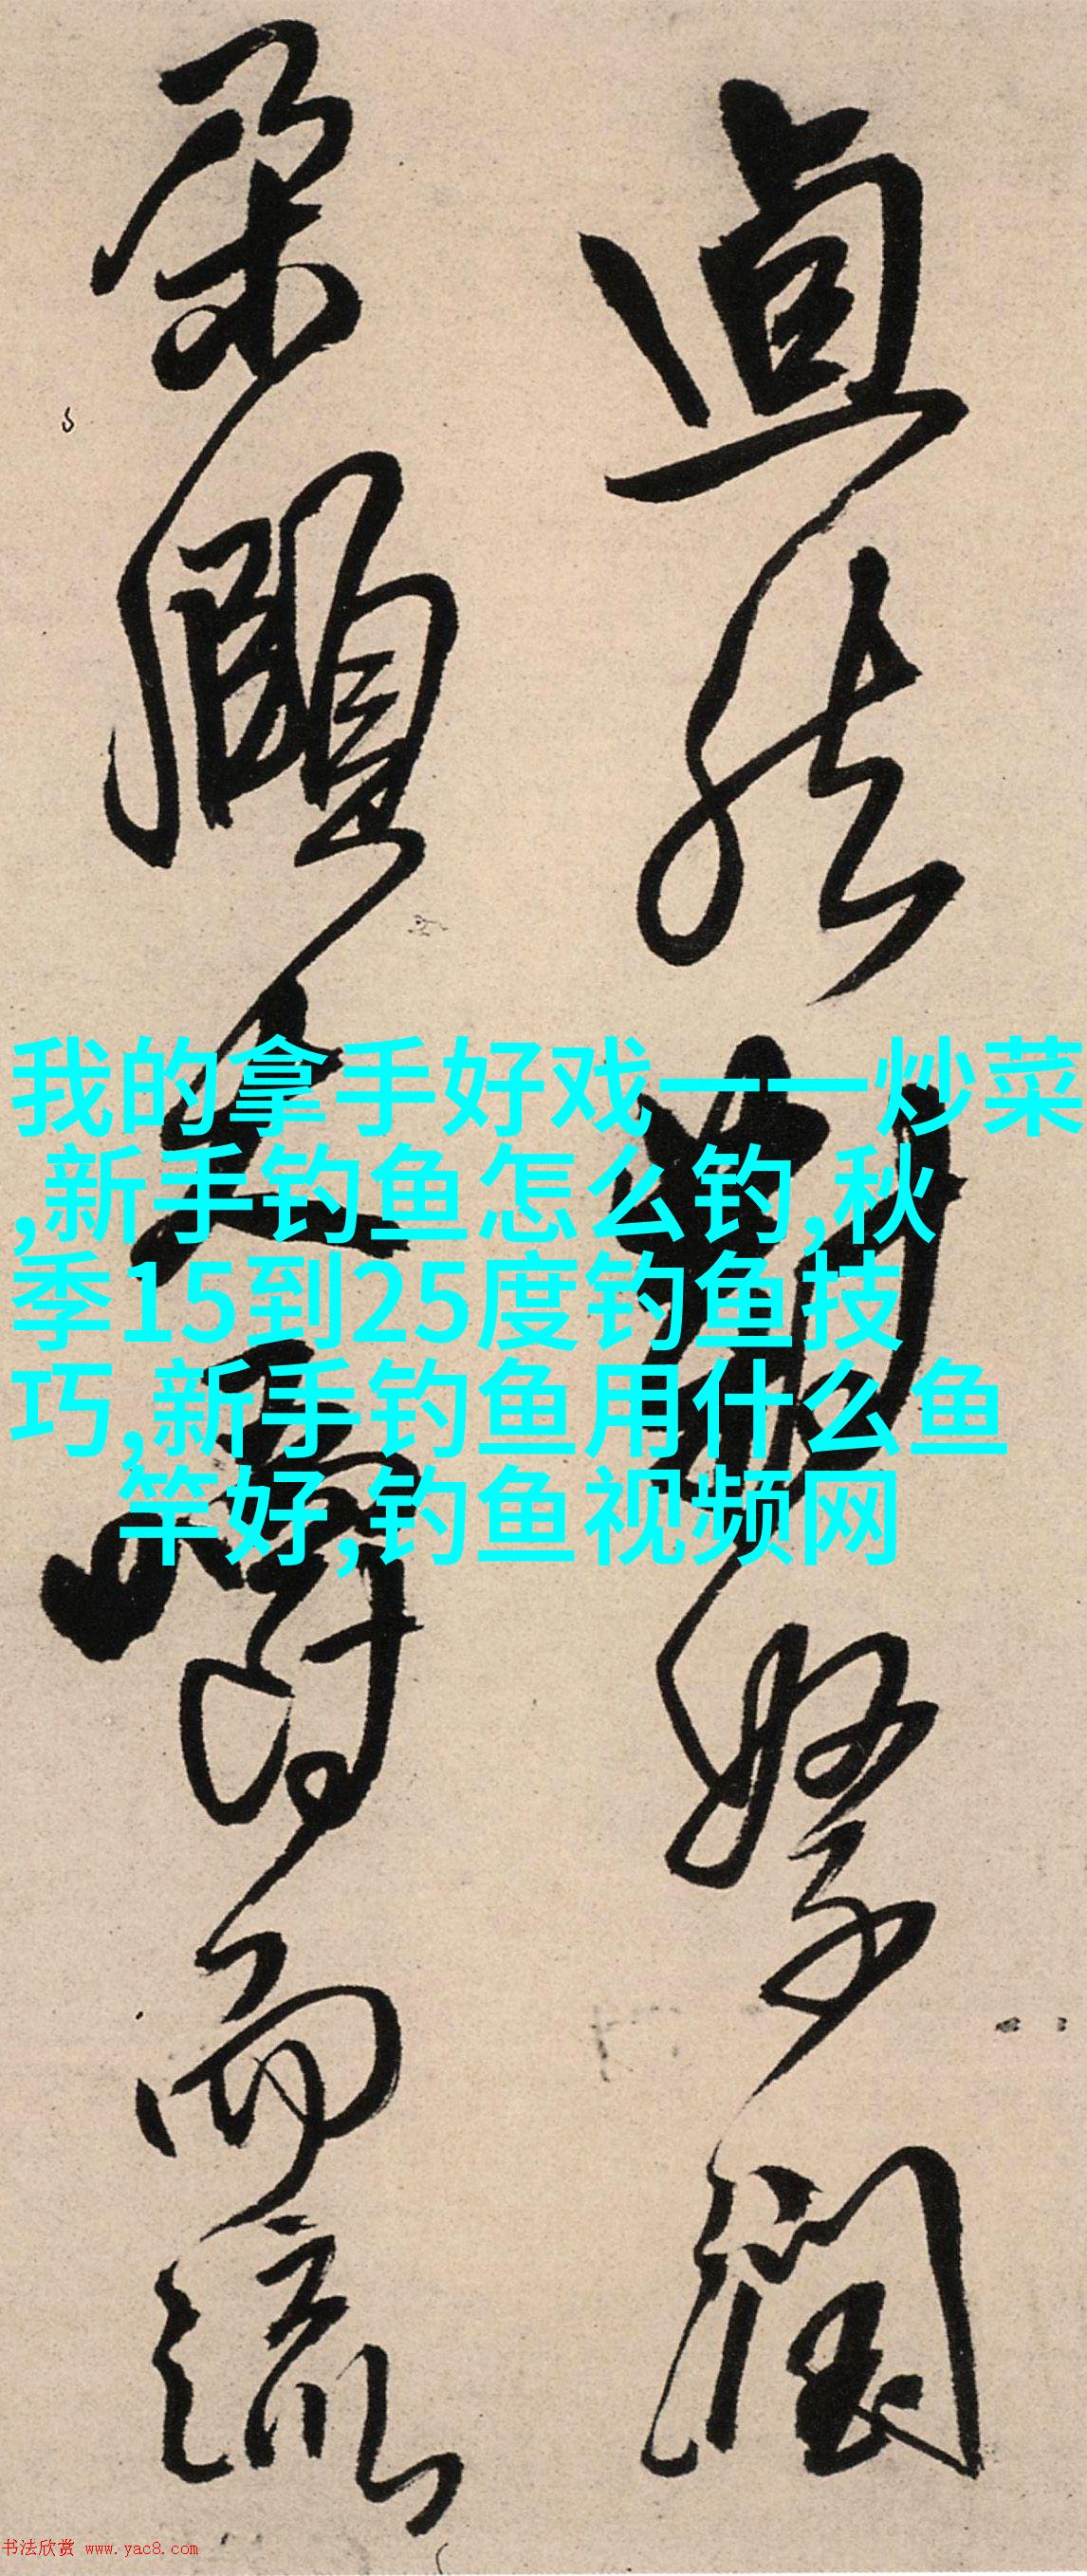 然 潤
朵頤 嚼而流
我的拿手好戏——炒菜
,新手钓鱼怎么钓,秋
季15到25度钓鱼技
巧,新手钓鱼用什么鱼
竿好,钓鱼视频网
书法欣赏 www.yac8.com